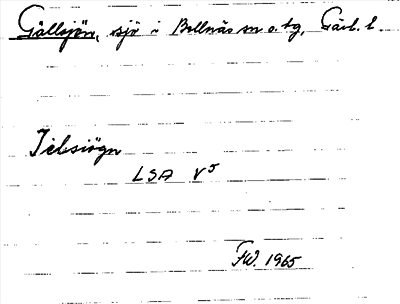 Gällsjön, sjö i Bollnäs sn o. tg, Gävl. l.
Jelsiögn
LSA V⁵
FW. 1965